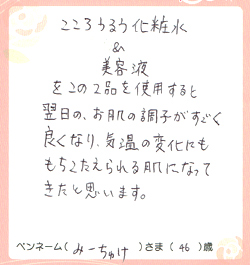 こころうるう化粧水
&
美容液
をこの2品を使用すると
翌日の、お肌の調子がすごく
良くなり、気温の変化にも
もちこたえられる肌になって
きたと思います。
ペンネーム(みーちゅけ)さま(46)歳